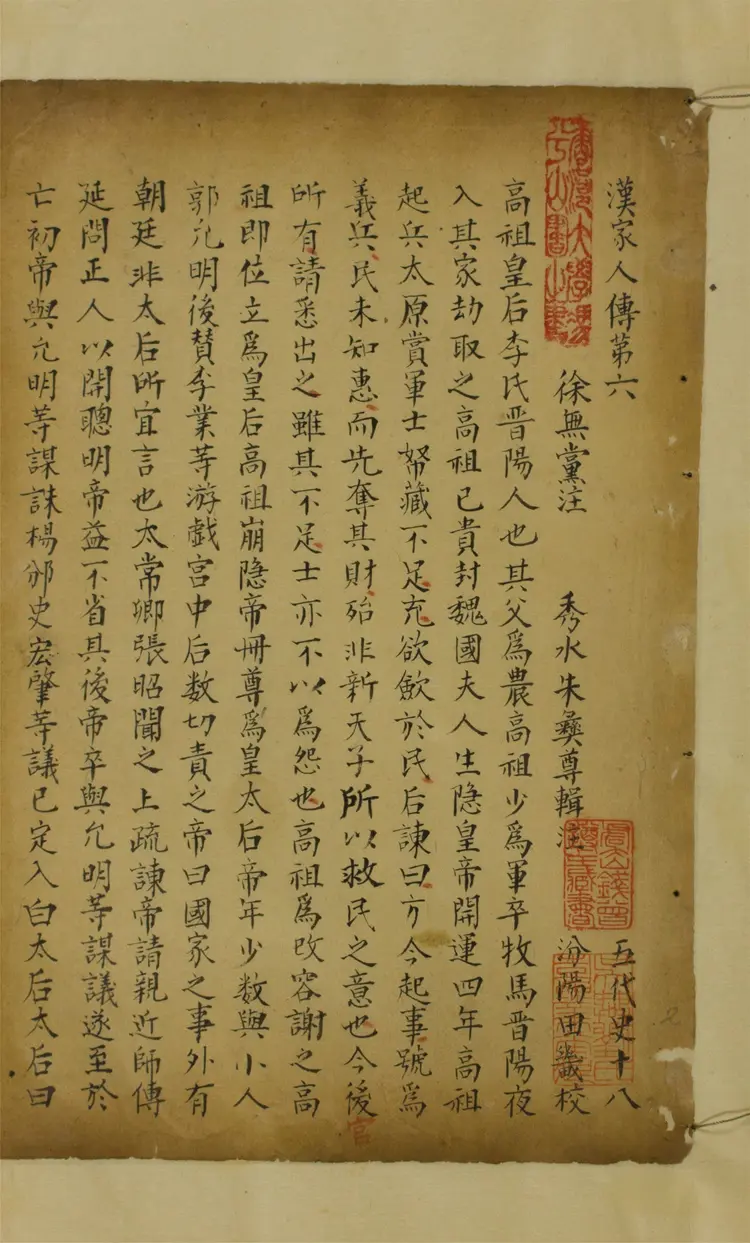 漢家人傳第六 五代史十八
徐無黨注 秀水朱彝尊輯注 汾陽田畿校
高祖皇后李氏晋陽人也其父為農高祖少為軍卒牧馬晋陽夜
入其家劫取之高祖已貴封魏國夫人生隐皇帝開運四年高祖
起兵太原賞軍士帑藏不足充欲歛於民后諫曰方今起事號為
義兵民未知惠而先奪其財殆非新天子所以救民之意也今後
官
所有請悉出之雖其不足士亦不以為怨也高祖為改容謝之高
祖即位立為皇后高祖崩隐帝冊尊為皇太后帝年少数與小人
郭允明後賛李業䓁游戲宫中后数切責之帝曰國家之事外有
朝廷非太后所宜言也太常卿張昭聞之上疏諫帝請親近師傅
延問正人以開聰明帝益不省其後帝卒與允明䓁謀議遂至於
亡初帝與允明䓁謀誅楊邠史宏肇䓁議已定入白太后太后曰